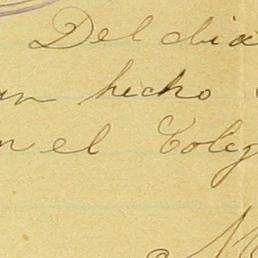 Del dia
un hecho
en el Coleg